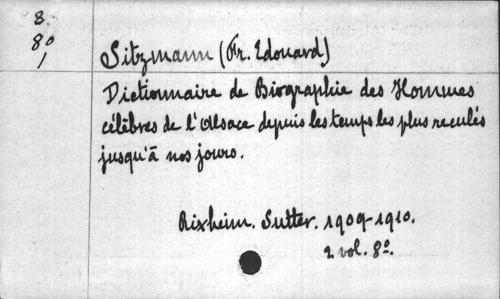 8.
80
/
Sitzmann (Fr. Edouard)
Dictionnaire de Biographie des Hommes
célèbres de l'Alsace depuis les temps les plus reculés
jusqu'à nos jours.
Rixheim. Sutter. 1909-1910.
2 vol. 8º.